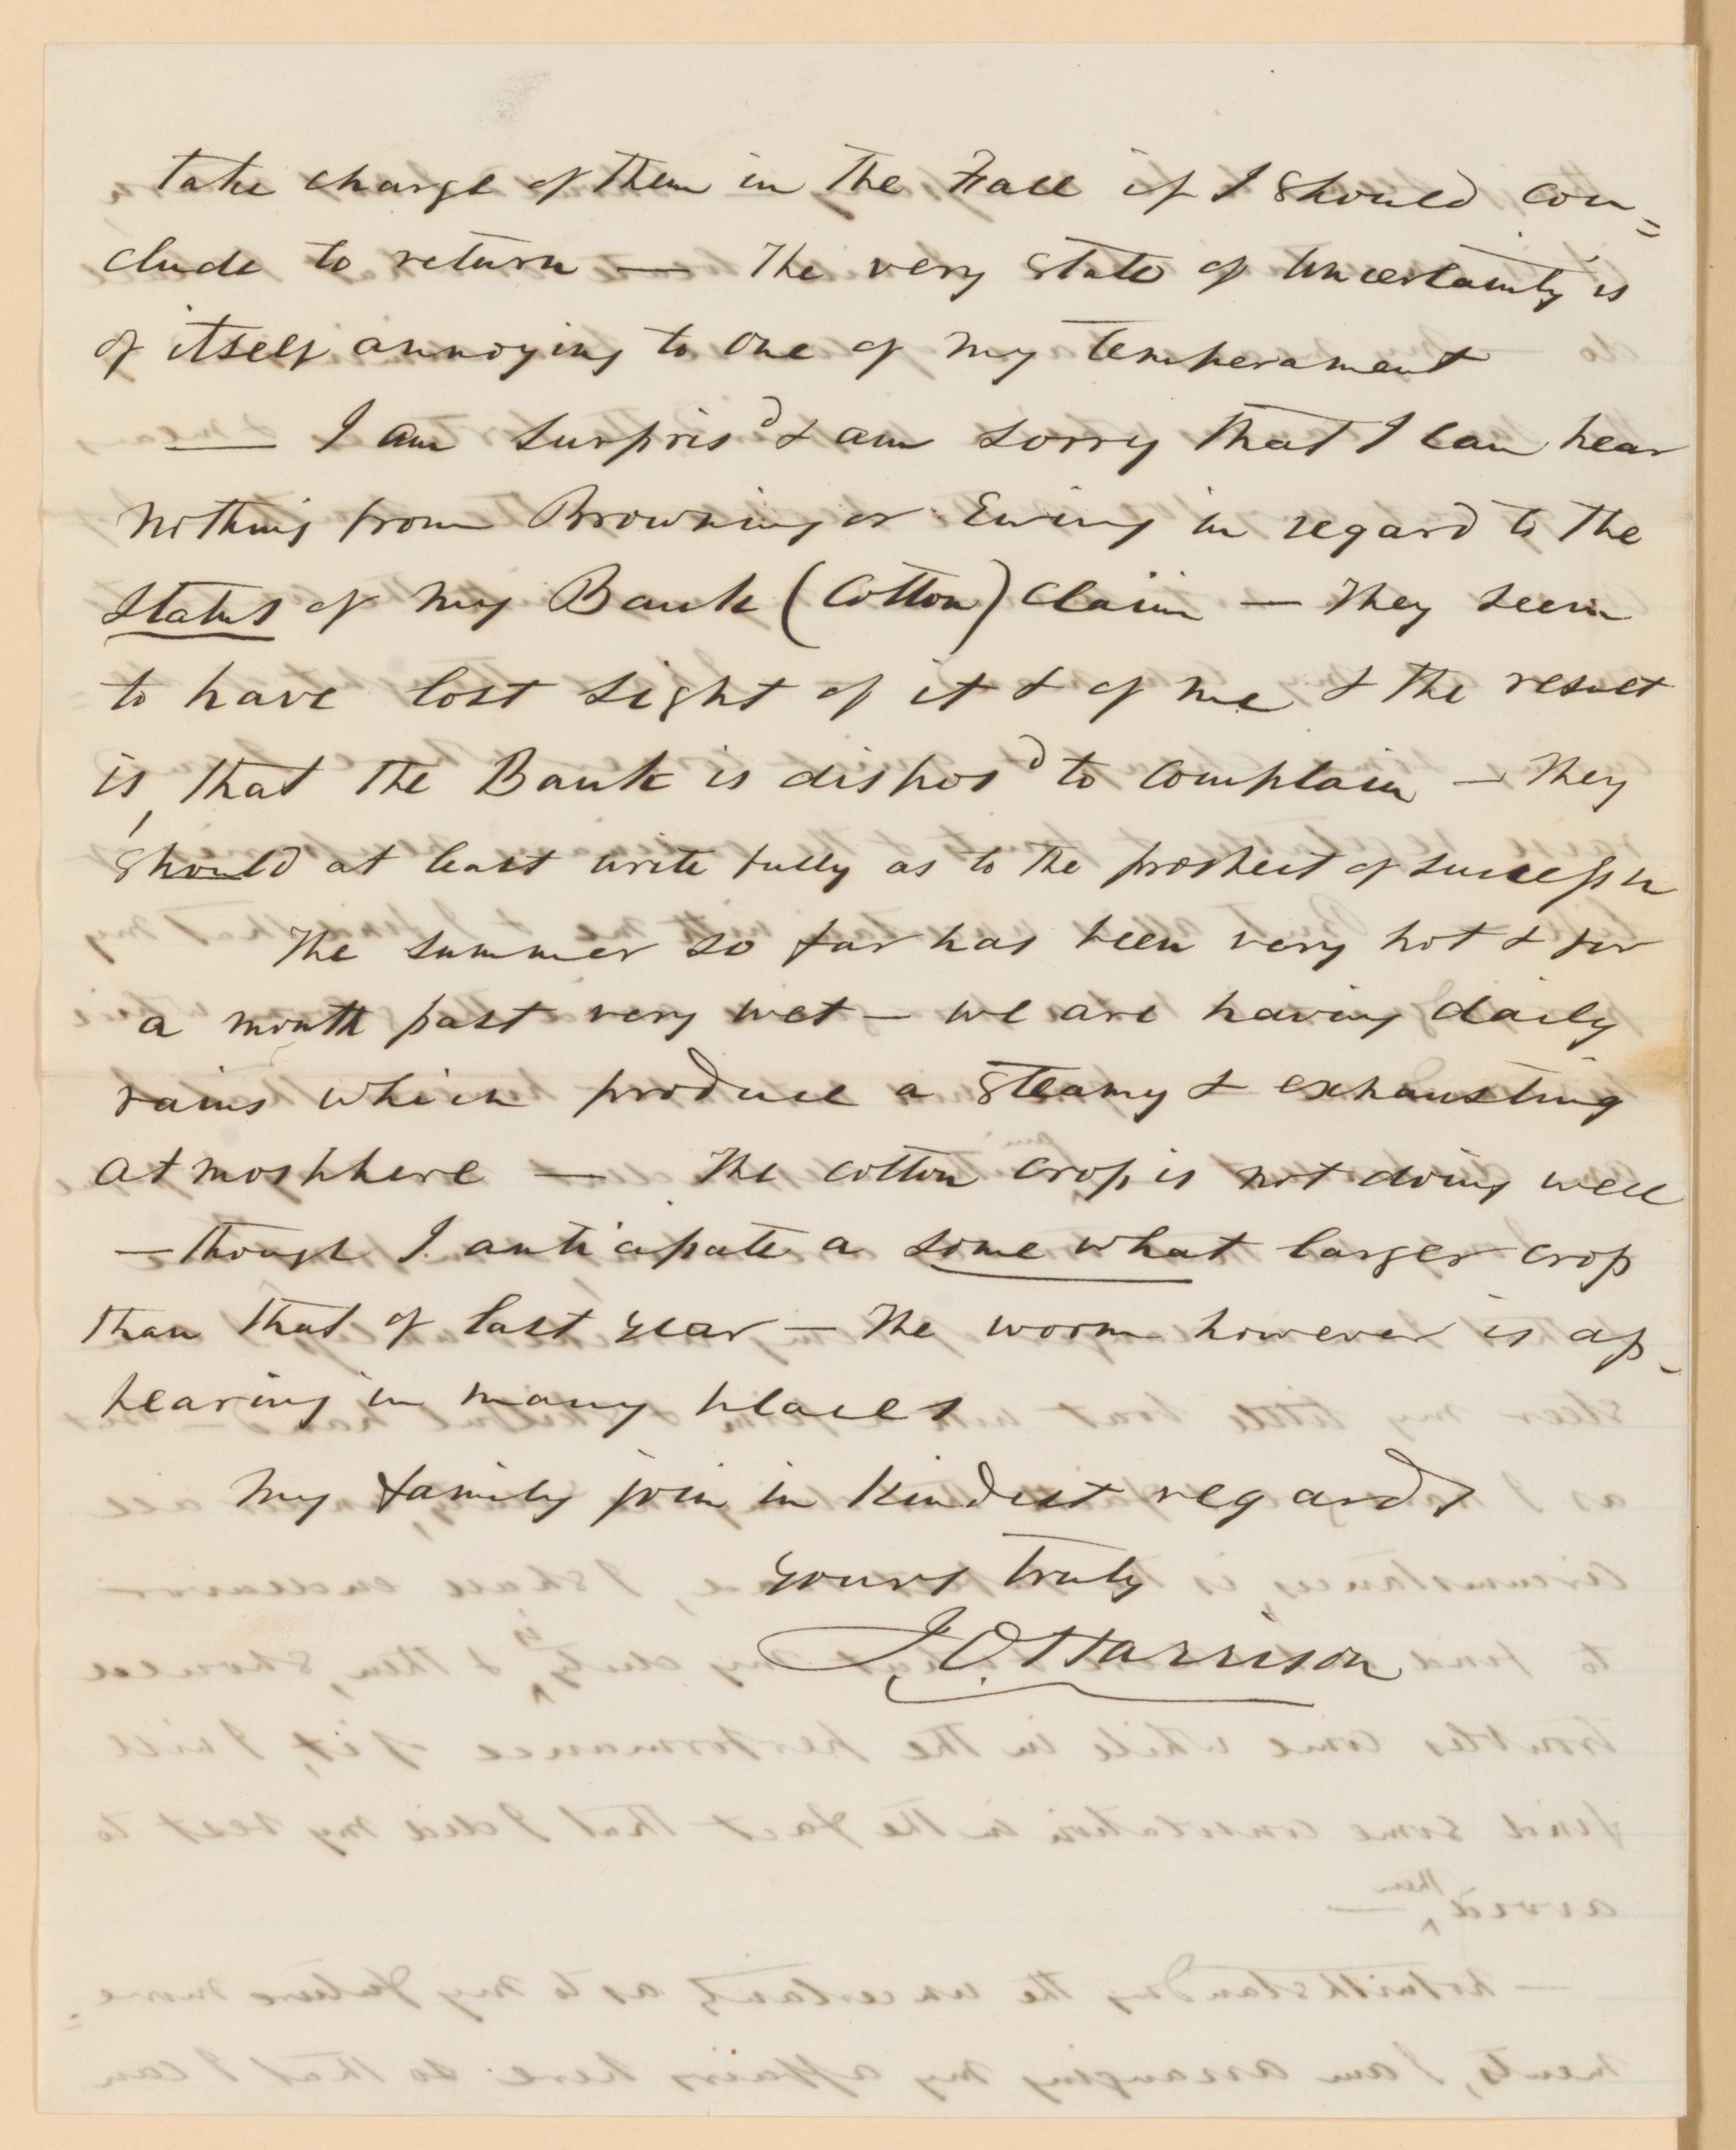 take charge of them in the Fall if I should con=
clude to return — The very state of uncertainty is
of itself annoying to one of my temperament
— I am surpris'd & am sorry that I can hear
nothing from Browning or Ewing in regard to the
status of my Bank (Cotton) claim — They seem
to have lost sight of it & of me & the result
is, that the Bank is dispos'd to complain — They
should at least write fully as to the prospect of success
The summer so far has been very hot & for
a month past very wet — we are having daily
rains which produce a steamy & exhausting
atmosphere — The cotton crop is not doing well
— though I anticipate a some what larger crop
than that of last year — The worm however is ap-
pearing in many places
My family join in kindest regards
Yours truly
J. O. Harrison